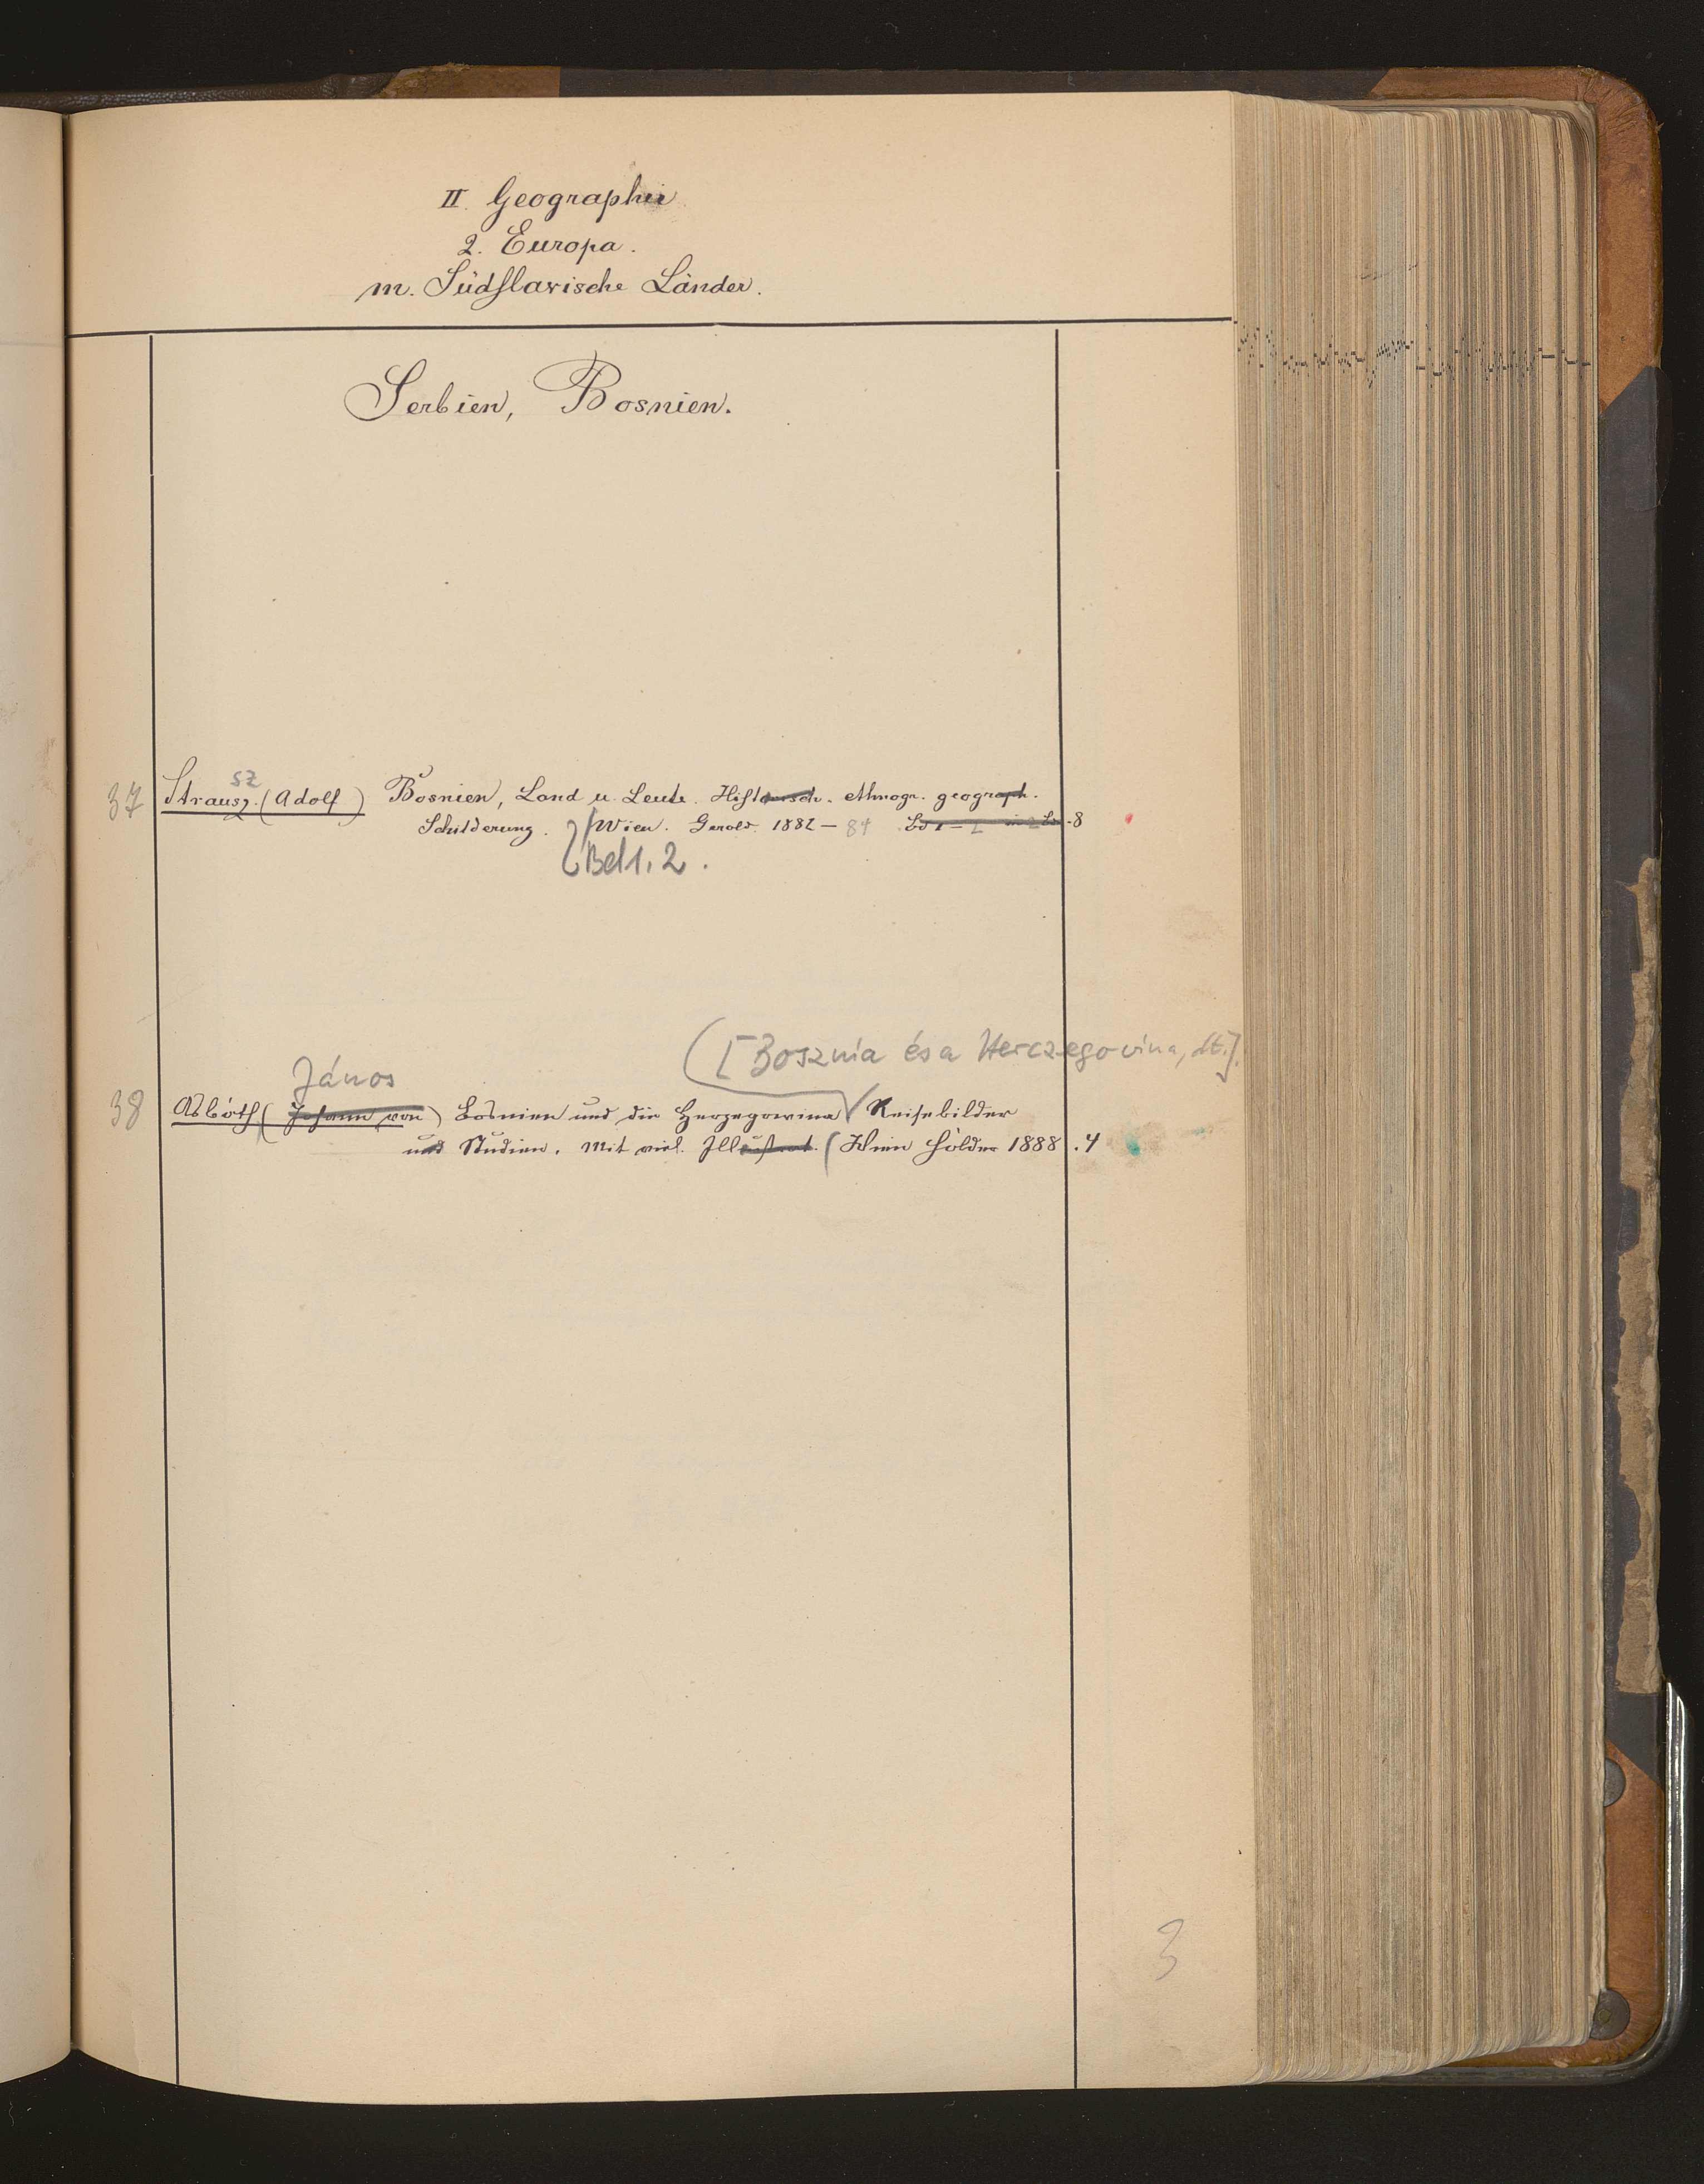 II. Geographie
2. Europa.
m. Südslavische Länder.
Serbien, Bosnien.
sz
37 Strausz. (Adolf) Bosnien, Land u. Leute. Historisch. ethnogr. geograph.
Schilderung. Wien. Gerold. 1882 - 84 Bd 1 - 2 in 2 Bd .8
Bd 1. 2.
([Bosznia és a Herczegovina, dt.].
János
38 Asbóth (Johann von) Bosnien und die Herzegowina Reisebilder
und Studien. Mit viel. Illustrat. (Wien Hölder 1888 .4
3